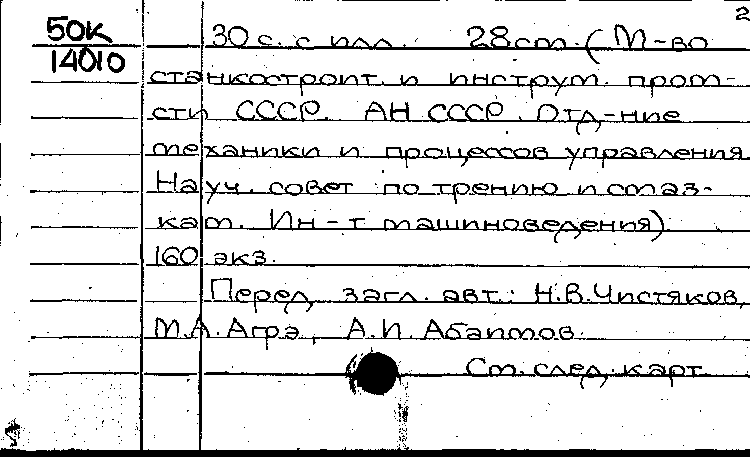 2
50К
14010
30 с. с илл. 28 см. (М-во
станкостроит. и инструм. пром-
сти СССР. АН СССР. Отд-ние
механики и процессов управления
Науч. совет по трению и смаз-
кам. Ин-т машиноведения).
160 экз.
Перед загл. авт.: Н.В.Чистяков,
М.А. Агрэ, А.И. Абаимов.
См. след. карт.